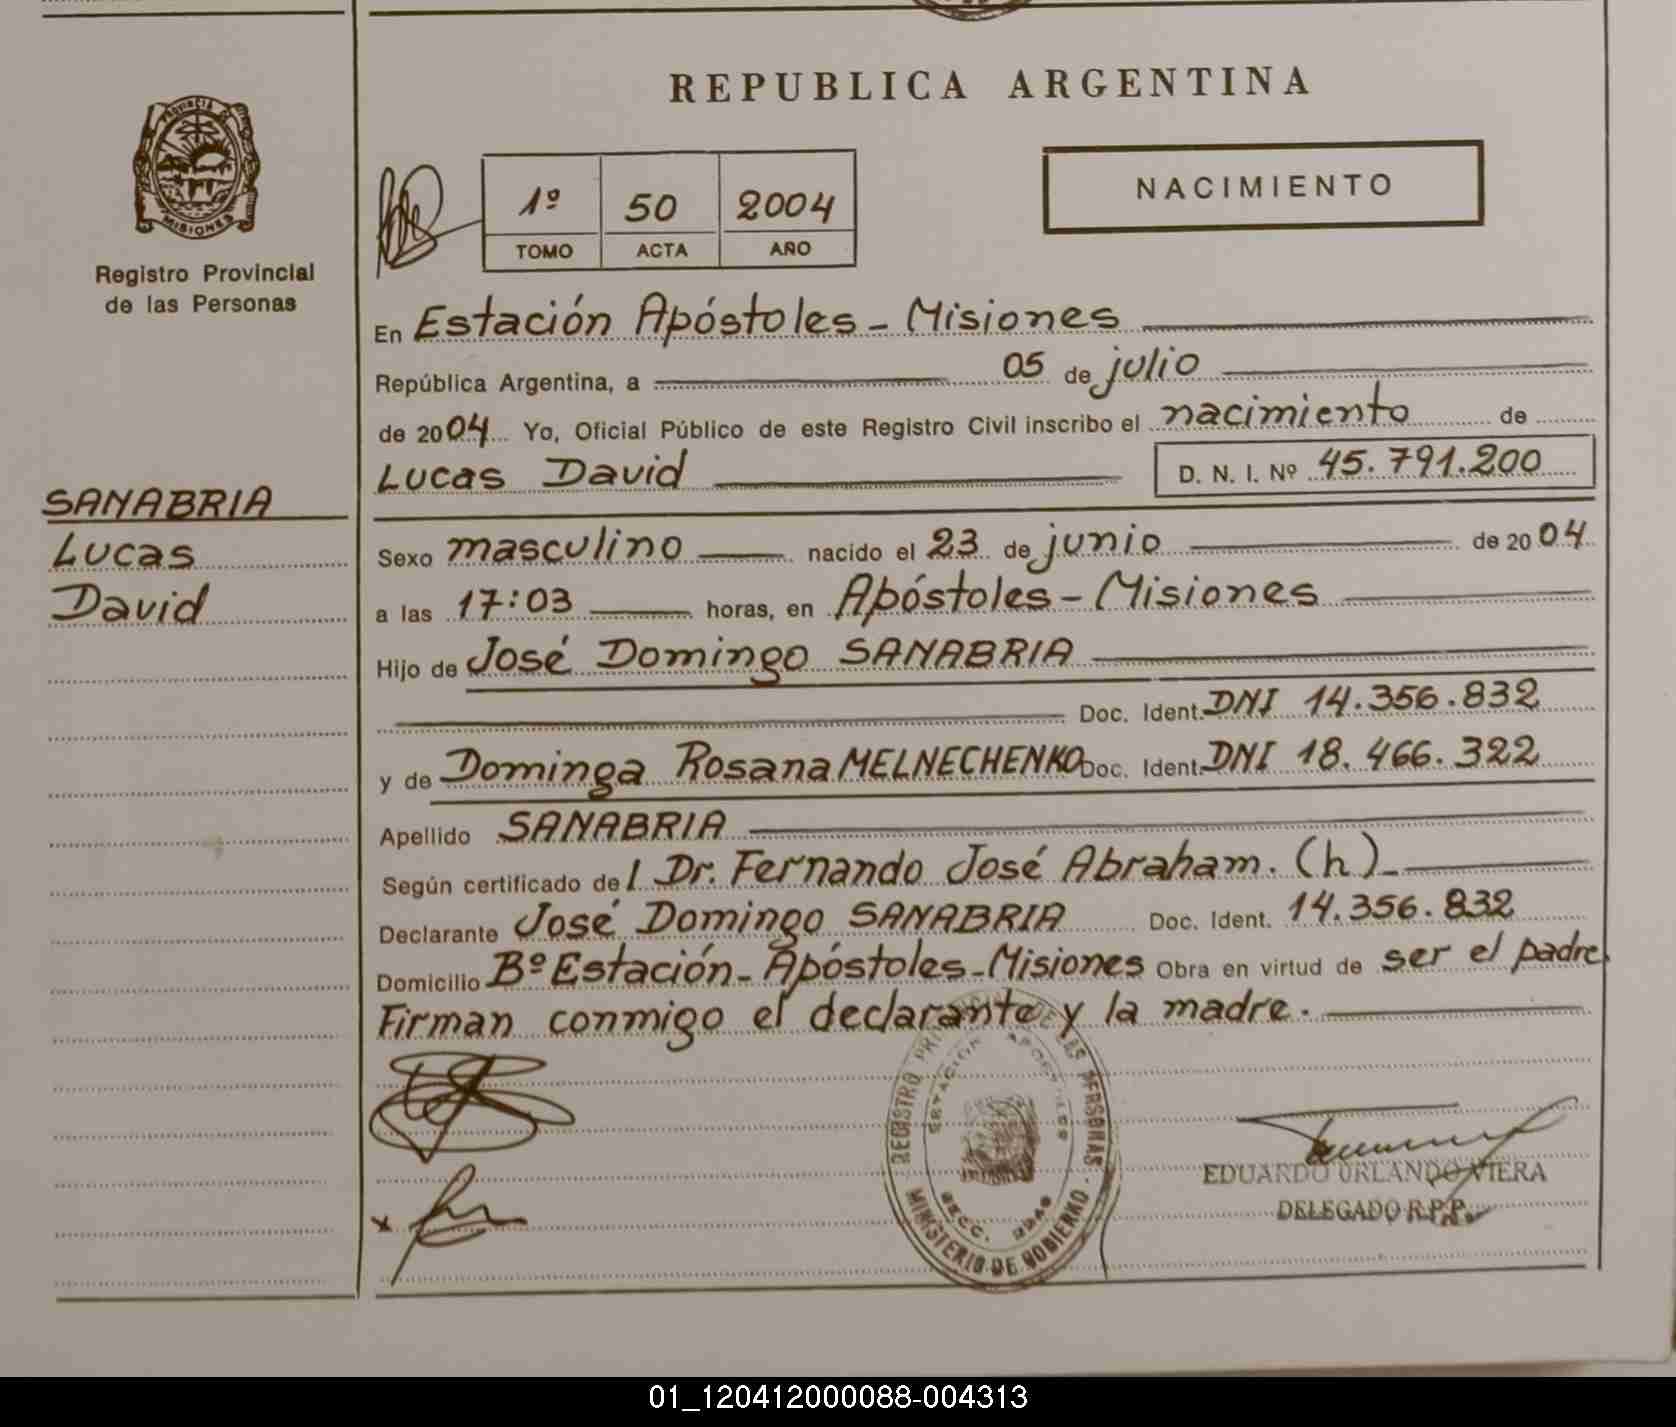 REPUBLICA ARGENTINA
PROVINCIA
MISIONES
Registro Provincial
de las Personas
1º 50 2004
TOMO ACTA AÑO
NACIMIENTO
En Estación Apóstoles - Misiones
República Argentina, a 05 de julio
de 2004 Yo, Oficial Público de este Registro Civil inscribo el nacimiento de
Lucas David D. N. I. Nº 45.791.200
SANABRIA
Lucas
David
Sexo masculino nacido el 23 de junio de 2004
a las 17:03 horas, en Apóstoles - Misiones
Hijo de José Domingo SANABRIA
Doc. Ident. DNI 14.356.832
y de Dominga Rosana MELNECHENKO Doc. Ident. DNI 18.466.322
Apellido SANABRIA
Según certificado del Dr. Fernando José Abraham. (h)
Declarante José Domingo SANABRIA Doc. Ident. 14.356.832
Domicilio Bº Estación - Apóstoles - Misiones Obra en virtud de ser el padre.
Firman conmigo el declarante y la madre.
REGISTRO PROVINCIAL DE LAS PERSONAS - MINISTERIO DE GOBIERNO
ESTACION APOSTOLES
SECC.
EDUARDO ORLANDO VIERA
DELEGADO R.P.P.
01_120412000088-004313